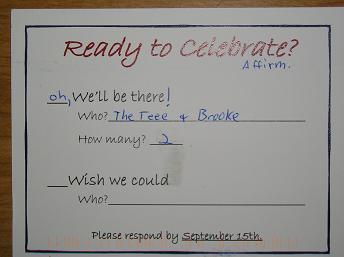 Ready to Celebrate?
Affirm.
oh, We'll be there!
Who? The Teee & Brooke
How many? 2
Wish we could
Who?
Please respond by September 15th.